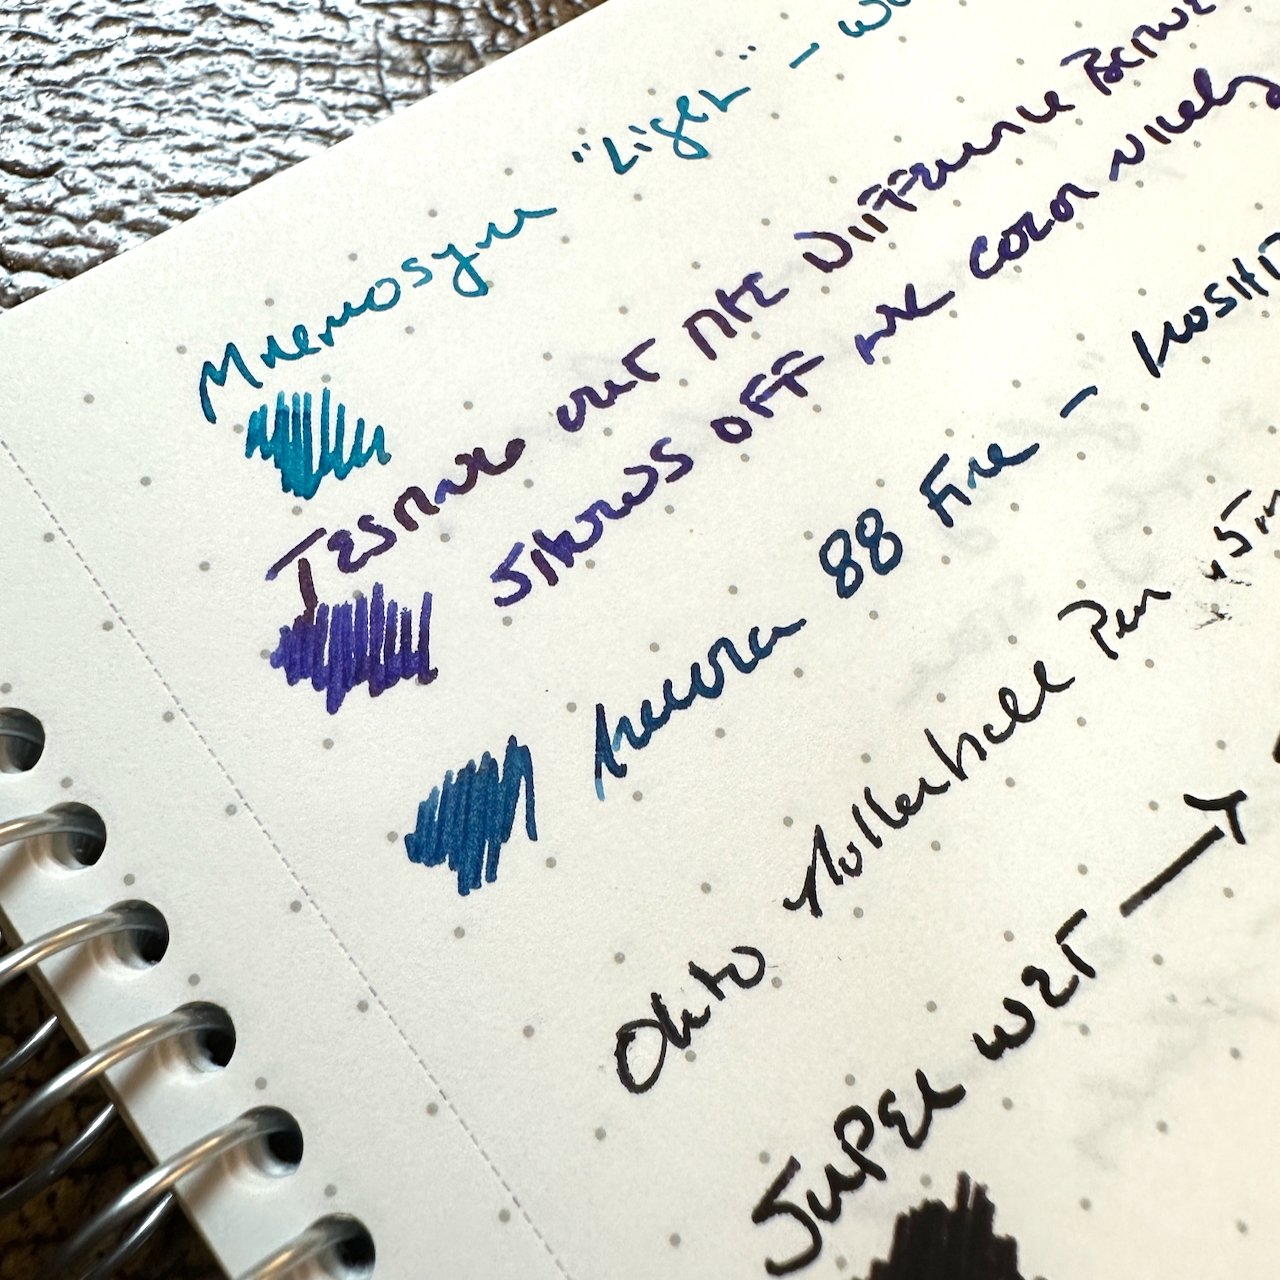 Mnemosyne "Light" – wo
Testing out the Difference Betwe
Shows off the color nicely
Aurora 88 Fine – Koshi
Ohto Rollerball Pen .5m
Super wet →